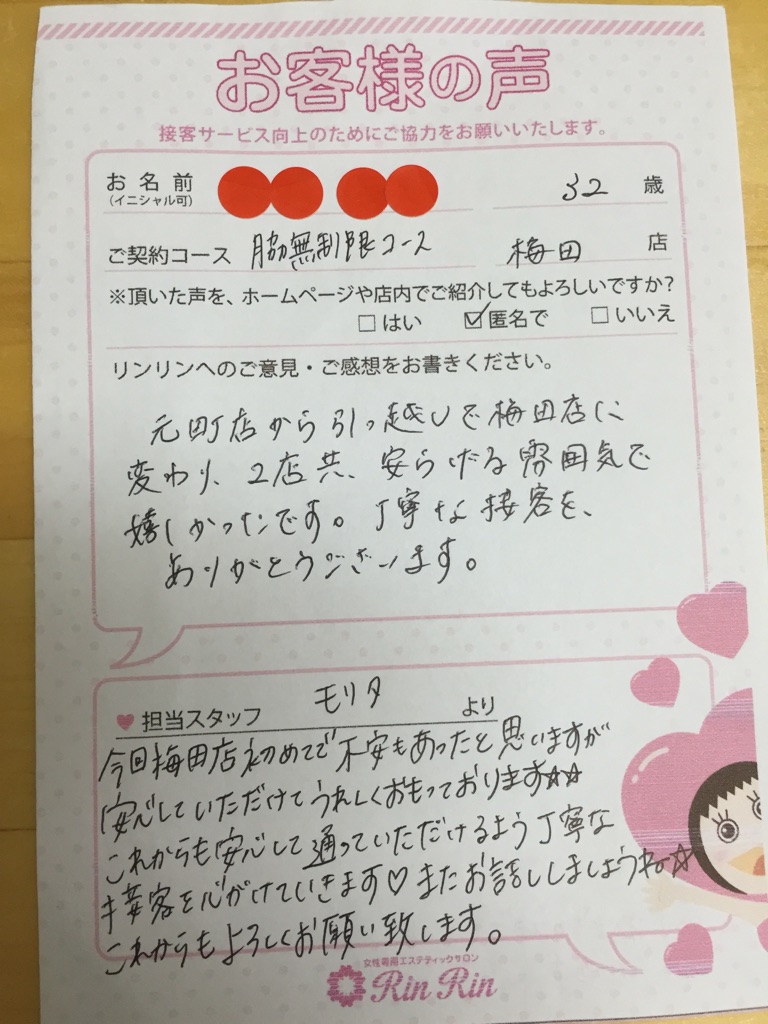 お客様の声
接客サービス向上のためにご協力をお願いいたします。
お名前 32 歳
(イニシャル可)
ご契約コース 脇無制限コース 梅田 店
※頂いた声を、ホームページや店内でご紹介してもよろしいですか?
□はい ☑匿名で □いいえ
リンリンへのご意見・ご感想をお書きください。
元町店から引っ越しで梅田店に
変わり、2店共、安らげる雰囲気で
嬉しかったです。丁寧な接客を、
ありがとうございます。
♥担当スタッフ モリタ より
今回梅田店初めてで不安もあったと思いますが
安心していただけてうれしくおもっております☆☆
これからも安心して通っていただけるよう丁寧な
接客を心がけていきます♡またお話ししましょうね☆
これからもよろしくお願い致します。
女性専用エステティックサロン
Rin Rin